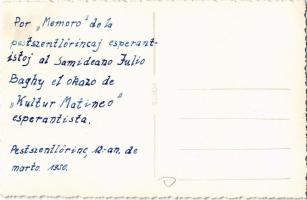 Por „Memoro" de la
pestszentlőrincaj esperant-
istoj al Samideano Julio
Baghy el okazo de
„Kultur Matineo"
esperantista.
Pestszentlőrinc, 12-an. de
marto. 1950.